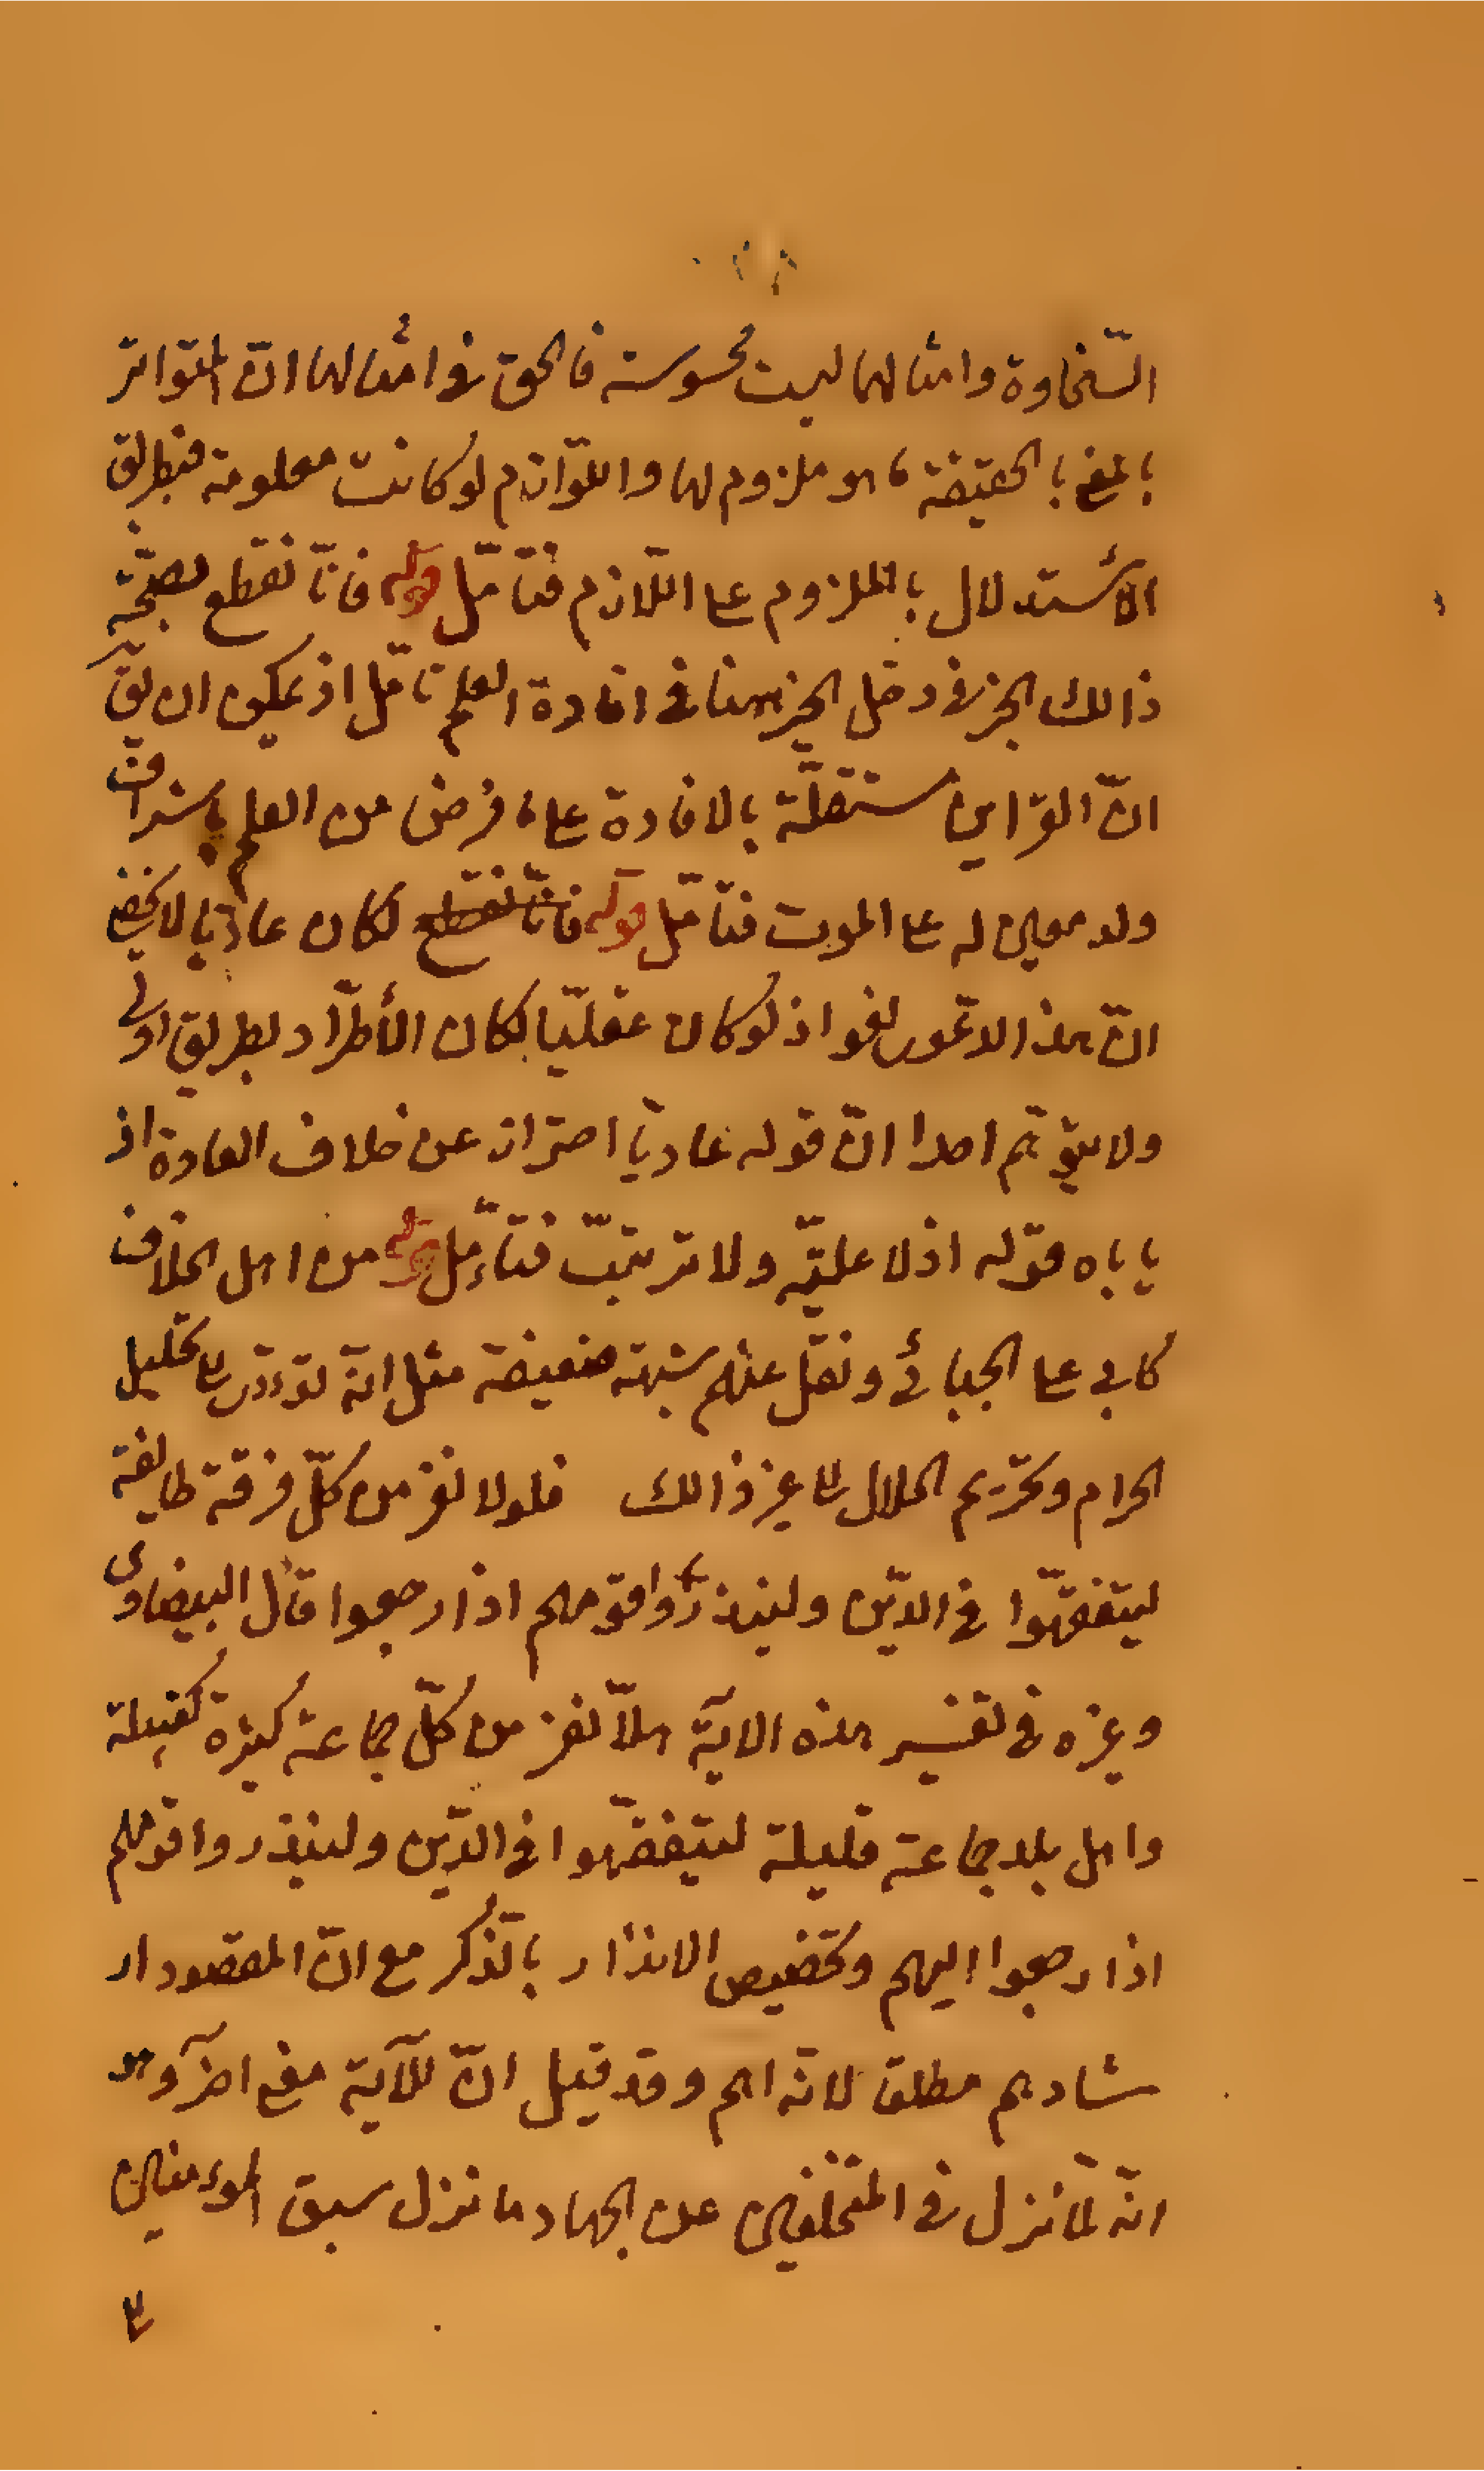 السّخاوة وامثالها ليست محسوسة فالحق فى امثالها انّ المتواتر
بالمعنى بالحقيقة ما هو ملزوم لها واللّوازم لو كانت معلومة فبطريق
الأستدلال بالملزوم على اللّازم فتأمّل قوله فانّا نقطع بصحّة
ذالك الخبر فى دخل الخبر هنا فى افادة العلم تأمّل اذ يمكن ان يقّ
انّ القراين مستقلّة بالافادة على ما فرض من العلم باشراف
ولد معين له على الموت فتأمّل قوله فانّا نقطع لكان عاديّا لا يخفى
انّ هذا الدعوى لغو اذ لو كان عقليّا لكان الأطّراد بطريق اولى
ولا يتوهّم احد انّ قوله عاديّا احتراز عن خلاف العادة اذ
ياباه قوله اذ لا عليّة ولا ترتّب فتأمّل قوله من اهل الخلاف
كابى على الجبائى ونقل عنهم شبهة ضعيفة مثل انّه تؤدّى الى تحليل
الحرام وتحريم الحلال الى غير ذالك فلولا نفر من كلّ فرقة طايفة
ليتفقّهوا فى الدّين ولينذروا قومهم اذا رجعوا قال البيضاوى
وغيره فى تفسير هذه الاية هلّا نفر من كلّ جماعة كثيرة كقبيلة
واهل بلد جماعة قليلة ليتفقّهوا فى الدّين ولينذروا قومهم
اذا رجعوا اليهم وتخصيص الانذار بالذّكر مع انّ المقصود ار
شادهم مطلق لانّه اهم وقد قيل انّ للآية معنى اخر وهو
انّه لمّا نزل فى المتخلّفين عن الجهاد ما نزل سبق المؤمنين
الى